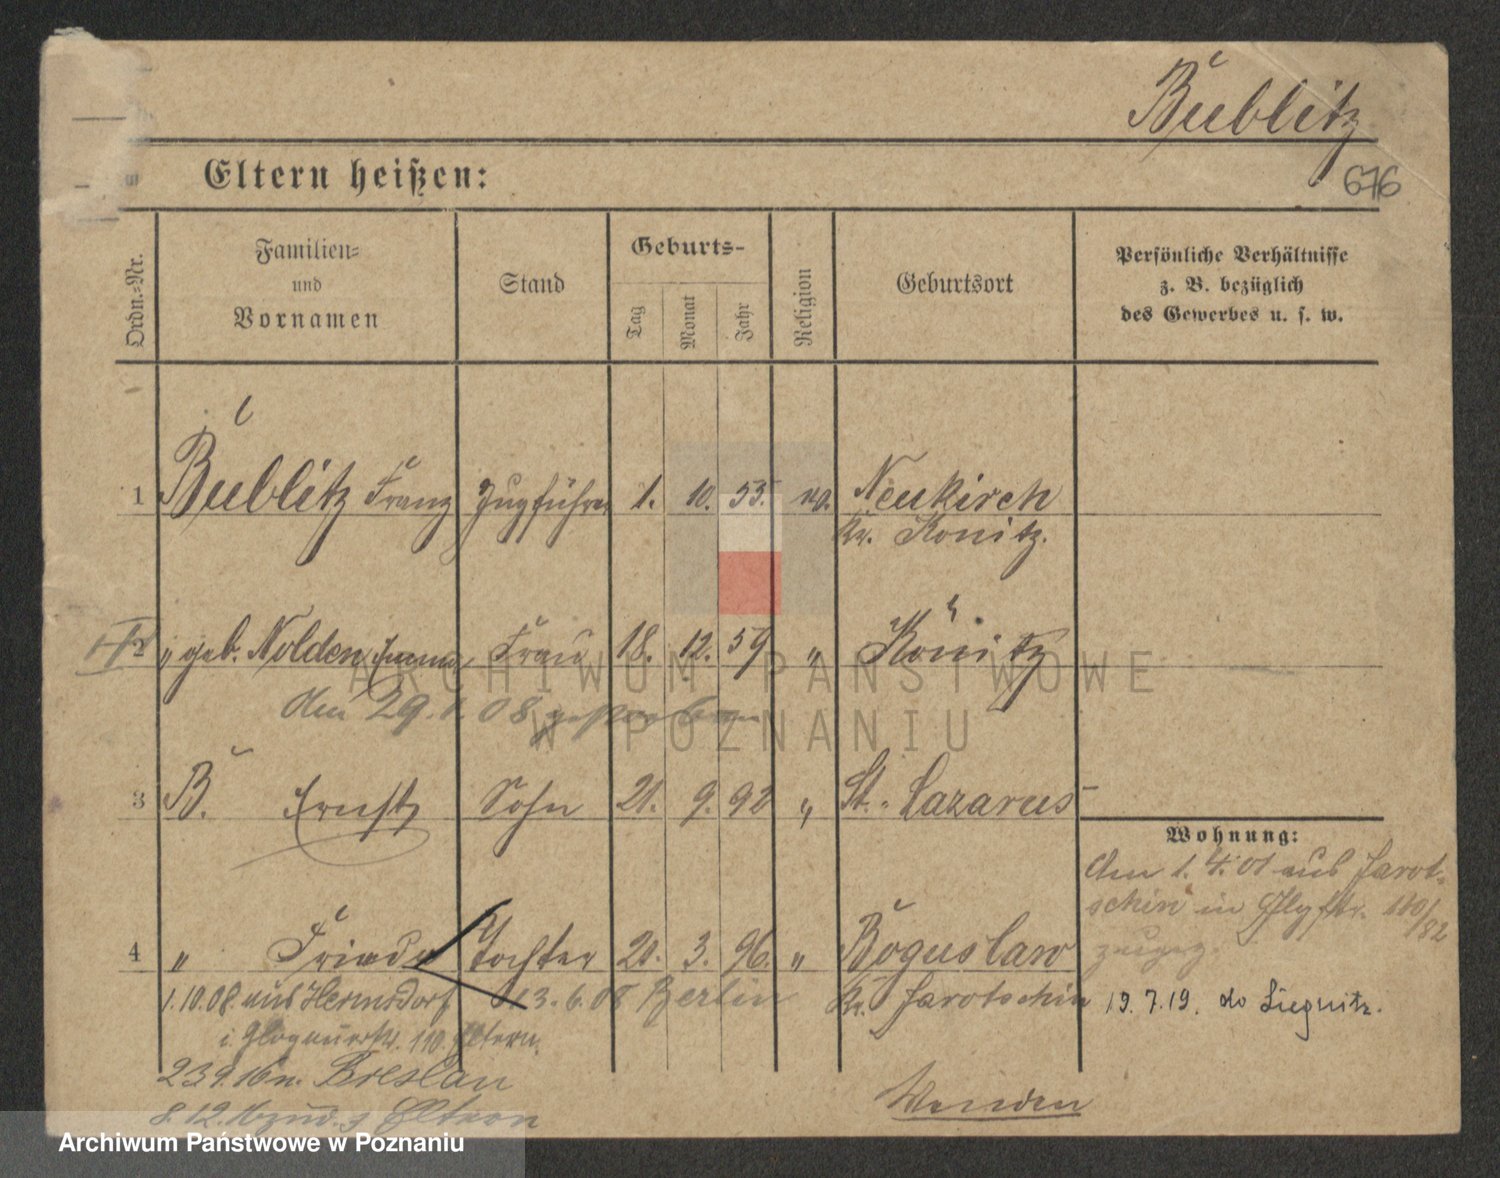 Bublitz
Eltern heißen:
676
Ordn.-Nr.
Familien- und Vornamen
Stand
Geburts-
Tag
Monat
Jahr
Religion
Geburtsort
Persönliche Verhältnisse
z. B. bezüglich
des Gewerbes u. s. w.
1 Bublitz Franz Zugführer 1. 10. 53. ev. Neukirch
Kr. Konitz.
2 " geb. Nolden Emma Frau 18. 12. 59 " Könitz
den 29. 1. 08 gestorben
3 B. Ernst Sohn 21. 9. 92 " St. Lazarus
Wohnung:
Am 1. 4. 01 aus Jarot-
schin in 110/82
zugez.
4 " Frieda Tochter 20. 3. 96. " Boguslaw
1.10.08. aus Hermsdorf 13.6.08 Berlin Kr. Jarotschin
19.7.19. do Liegnitz.
i. Glogauerstr. 110. Eltern.
23.9.16 n. Breslau
8.12.16 zud. z Eltern
Wenden
ARCHIWUM PAŃSTWOWE
W POZNANIU
Archiwum Państwowe w Poznaniu